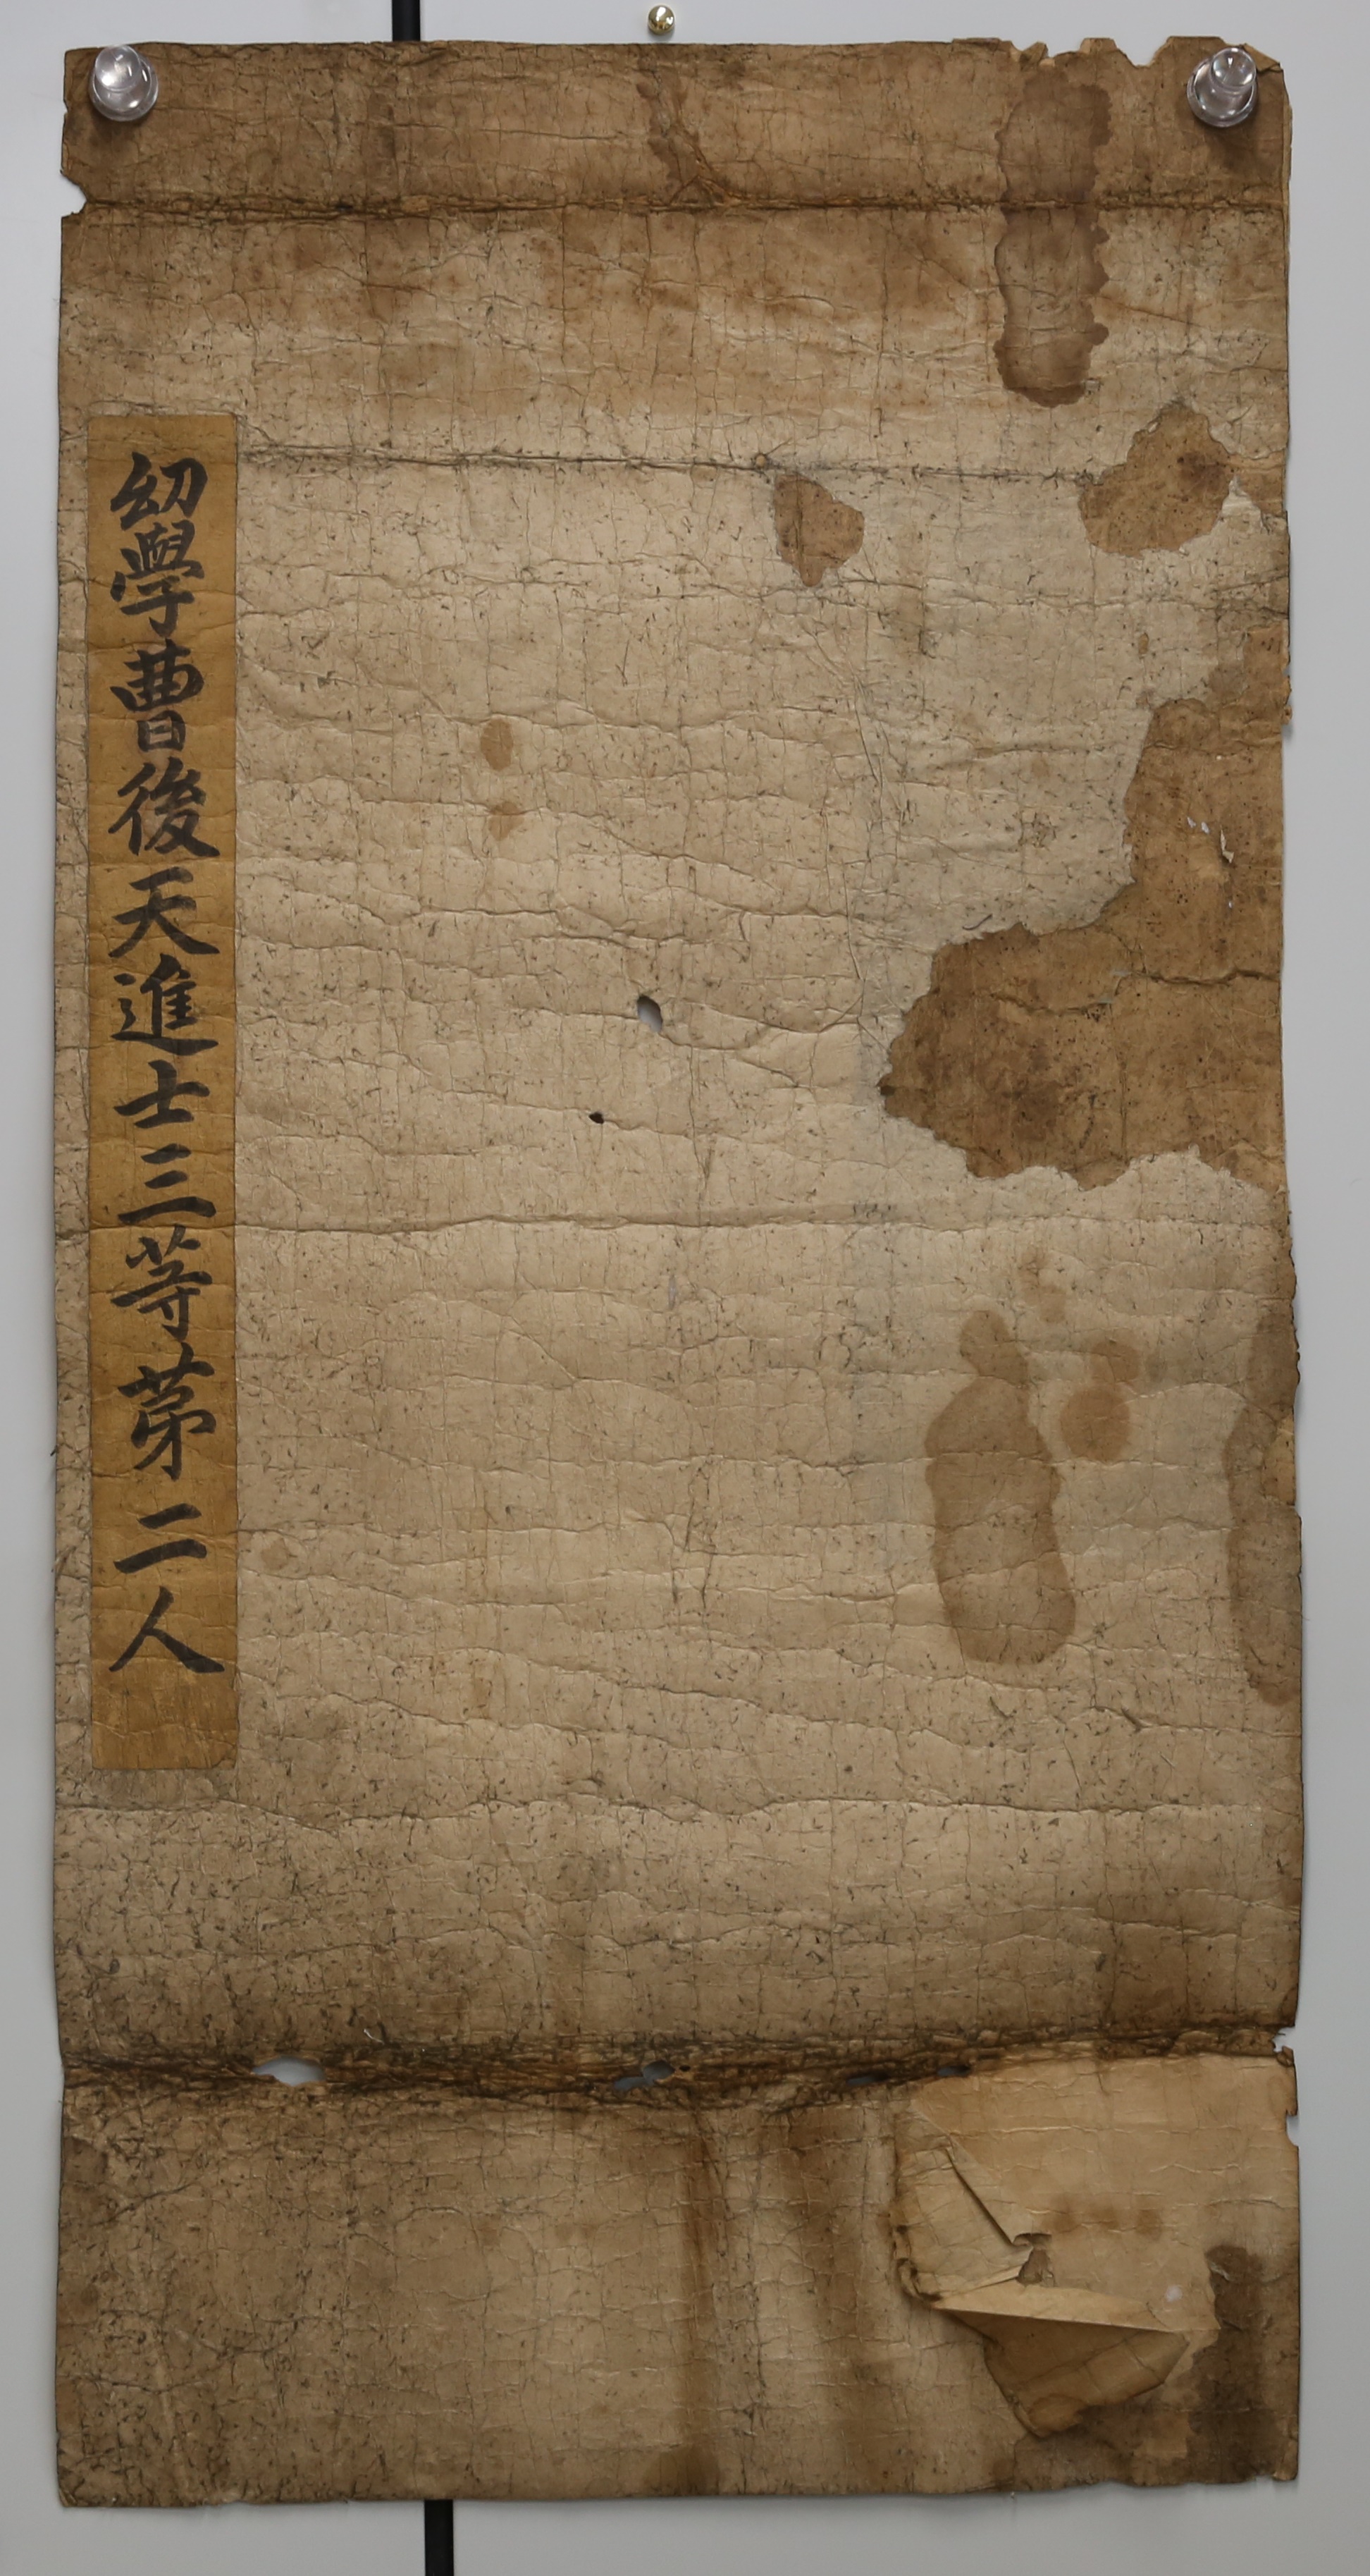 幼學曺後天進士三等苐二人